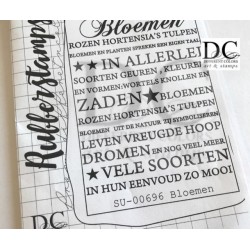 Bloemen
ROZEN HORTENSIA'S TULPEN
BLOEMEN EN PLANTEN SPREKEN EEN EIGEN TAAL
★ IN ALLERLEI
SOORTEN GEUREN, KLEUREN
EN VORMEN: WORTELS KNOLLEN EN
ZADEN ★ BLOEMEN
ROZEN HORTENSIA'S TULPEN
BLOEMEN UIT DE NATUUR ZIJ SYMBOLISEREN
LEVEN VREUGDE HOOP
DROMEN EN NOG VEEL MEER
★ VELE SOORTEN
IN HUN EENVOUD ZO MOOI
SU-00696 Bloemen
Rubberstamps
DC
DC
art & stamps